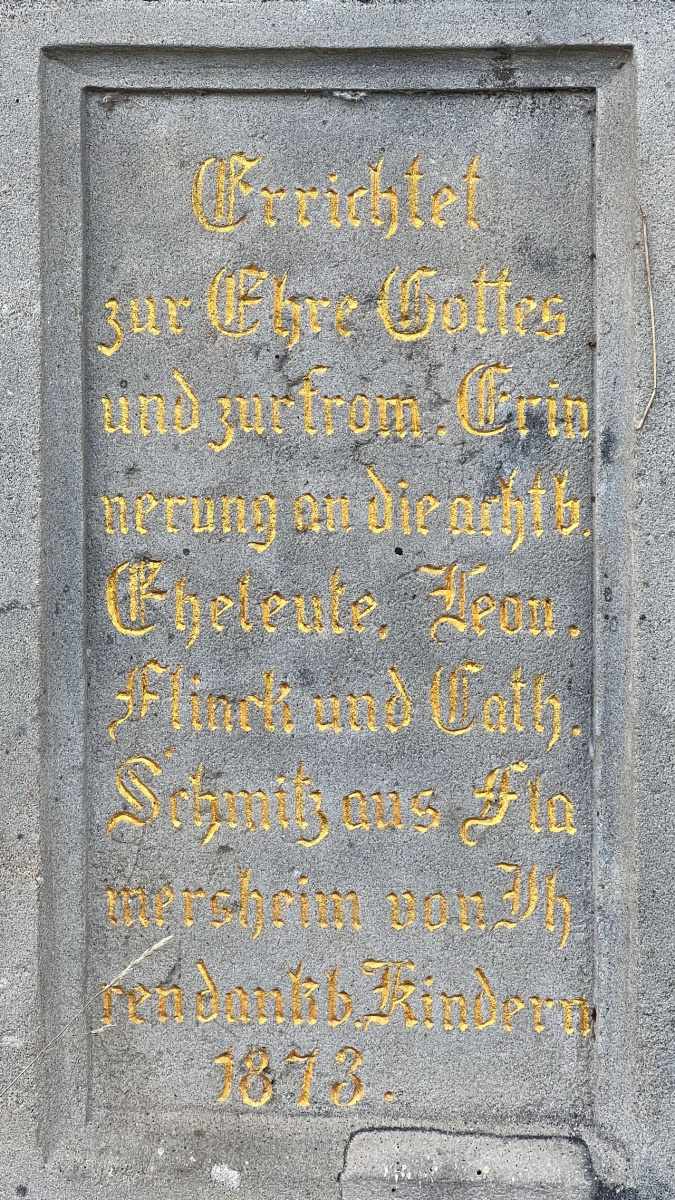 Errichtet
zur Ehre Gottes
und zur from. Erin
nerung an die achtb.
Eheleute, Leon.
Flinck und Cath.
Schmitz aus Fla
mersheim von Ih
ren dankb. Kindern
1873.